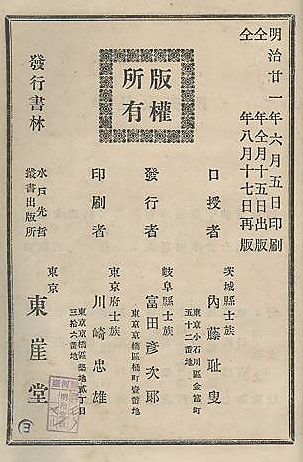 明治廿一年六月五日印刷
仝年仝月十五日出版
仝年八月十七日再版
版權所有
口授者
茨城縣士族
內藤耻叟
東京小石川區金富町
五十二番地
發行者
岐阜縣士族
富田彥次郎
東京京橋區桶町壹番地
印刷者
東京府士族
川崎忠雄
東京京橋區築地貳丁目
三拾六番地
發行書林
水戶先哲
叢書出版所
東京
東崖堂